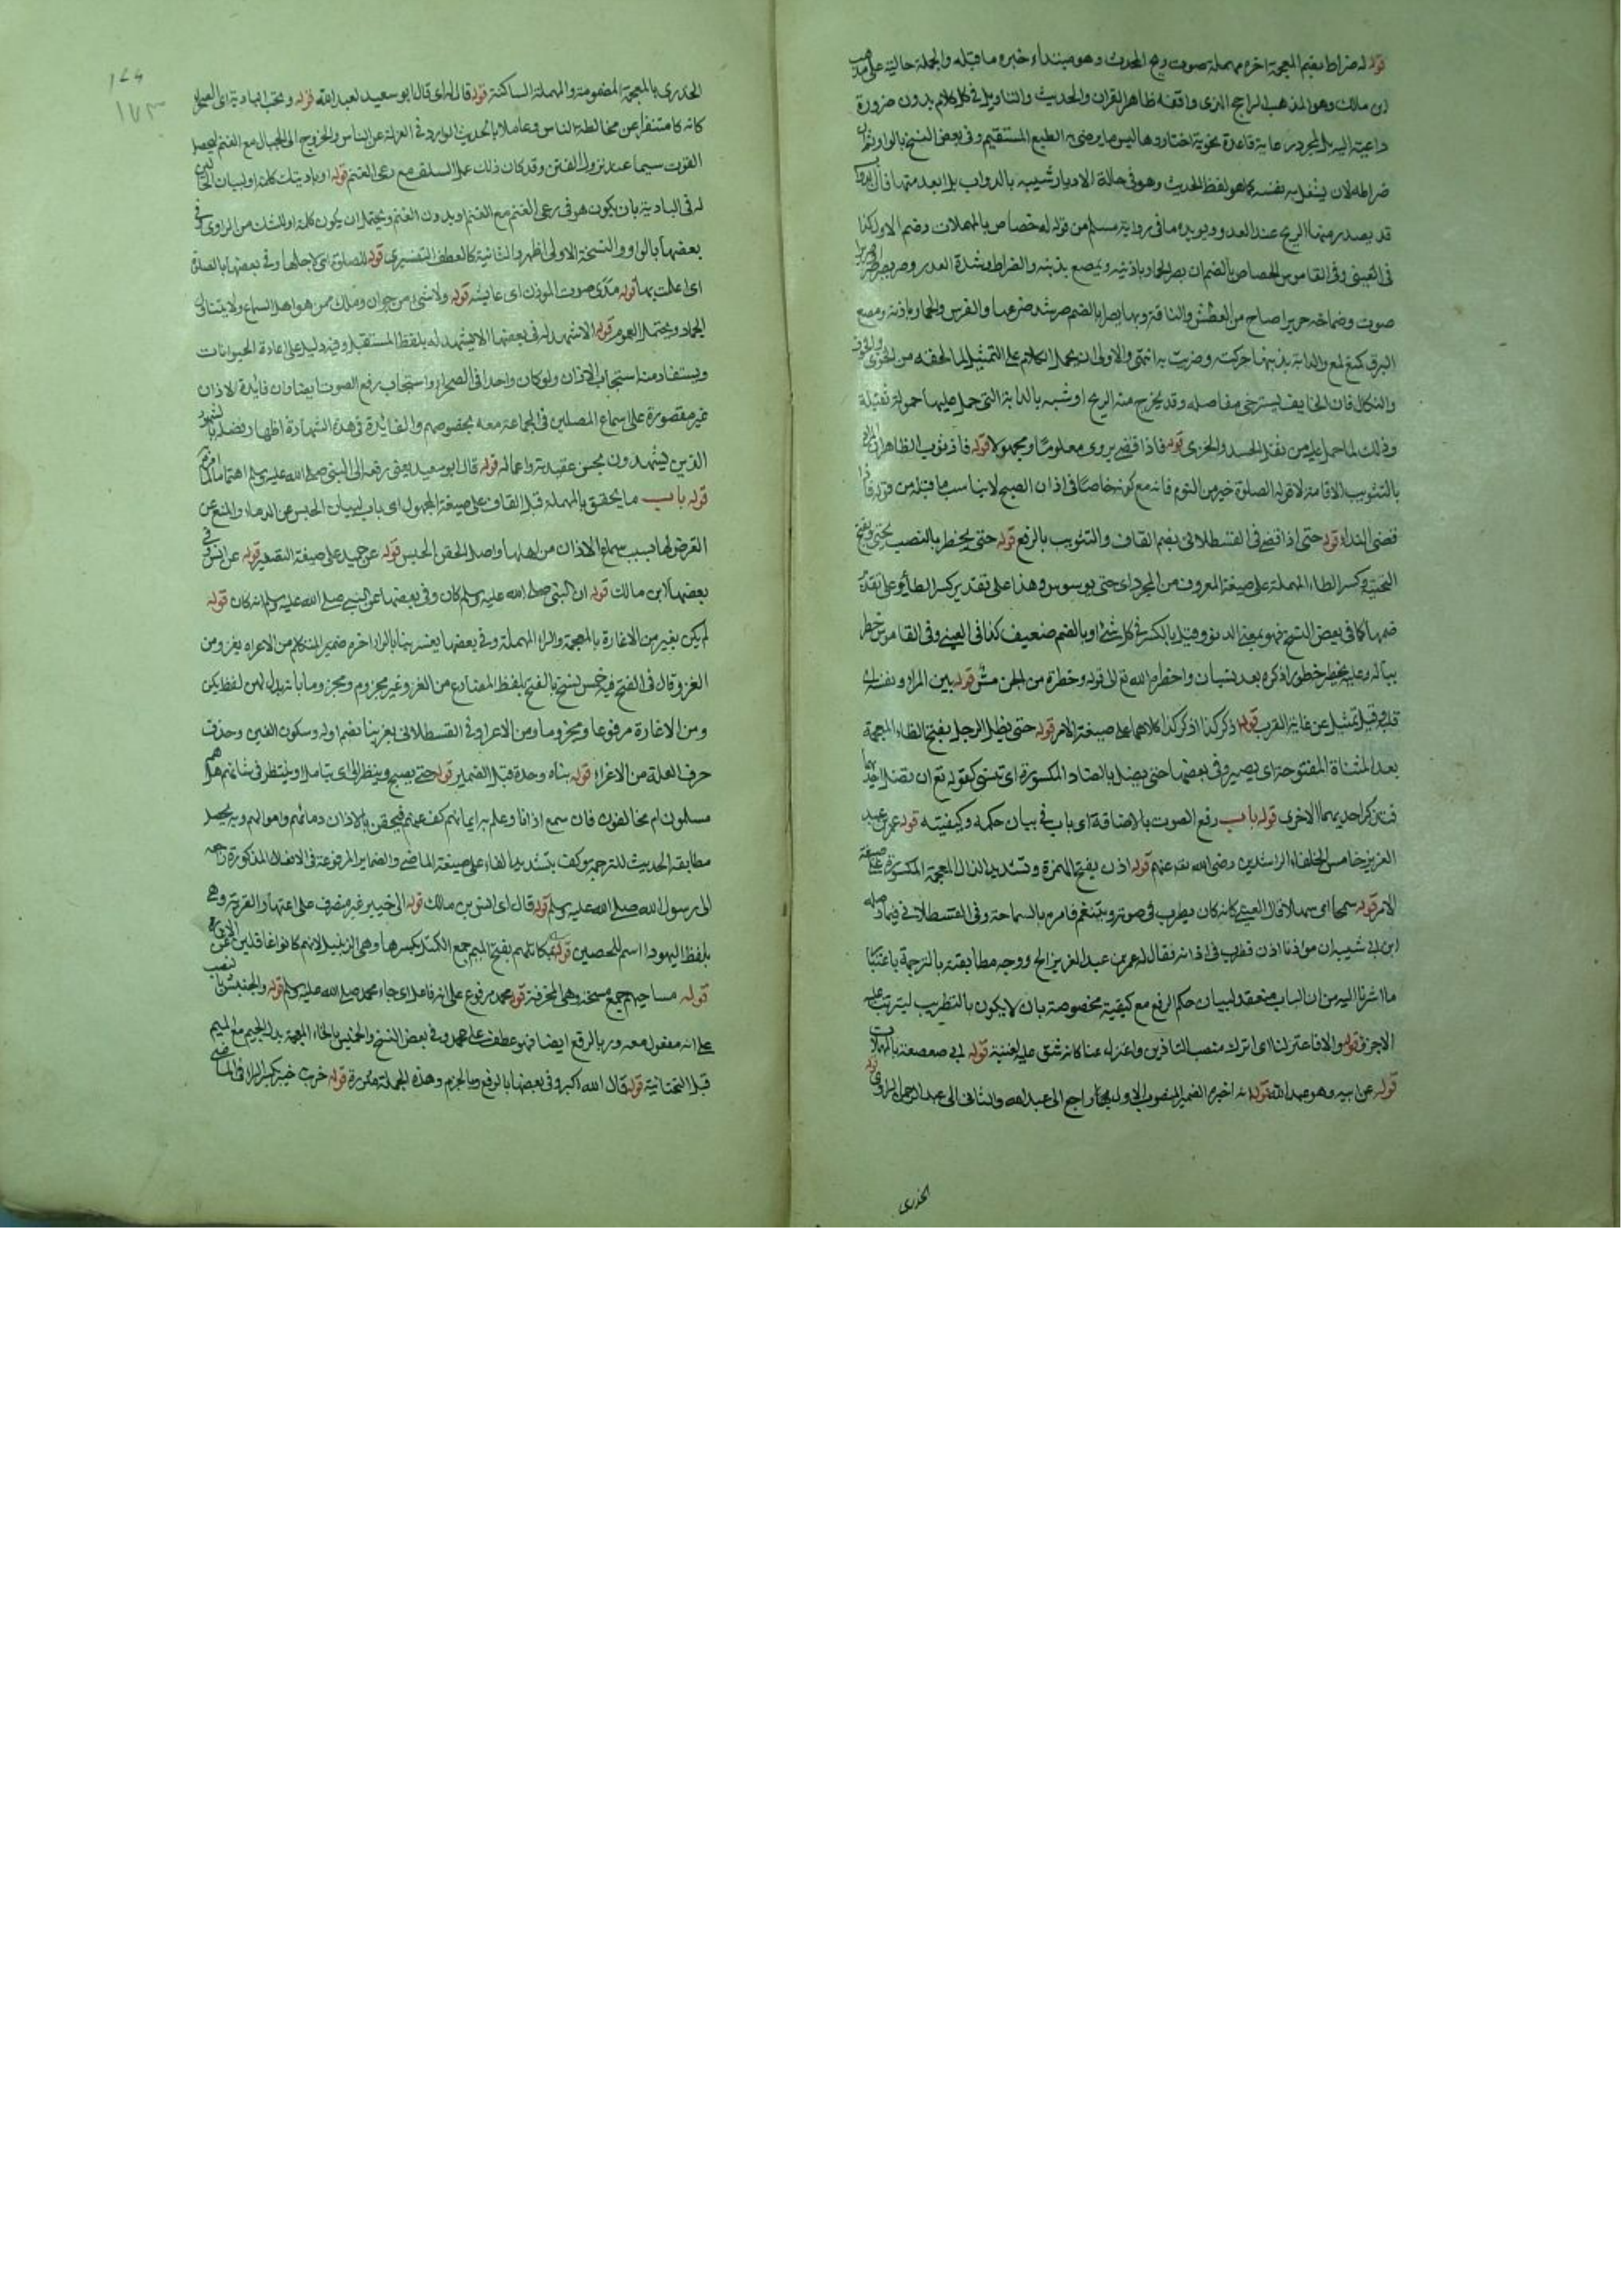 قوله له ضراط بضم المعجمة اخره مهملة صوت ريح المحدث وهو مبتداء خبره ما قبله والجملة حالية على مذهب
ابن مالك وهو المذهب الراجح الذى وافقه ظاهر القران والحديث والتاويل فى كل كلام بدون ضرورة
داعية اليه بل لمجرد رعاية قاعدة نحوية اختاروها ليس ما يرضى به الطبع المستقيم وفى بعض النسخ بالواو
ضراطه لان يشغل به نفسه كما هو لفظ الحديث وهو فى حالة الادبار شبيه بالدواب بل ابعد منها
قد يصدر منها الريح عند العدو ويويده ما فى رواية مسلم من قوله له حصاص بالمهملات وضم الاول كذا
فى العينى وفى القاموس الحصاص بالضم ان يصر الحمار باذنيه ويمصع بذنبه والضراط وشدة العدو وصر يصر
صوت وصماخه صريرا صاح من العطش والناقة وبها يصر بالضم صر شد ضرعها والفرس والحمار باذنه ومصع
البرق كمنع لمع والدابة بذنبها حركته وضربت به انتهى والاولى ان يحمل الكلام على التمثيل لما لحقه من الخزى والخوف
والنكال فان الخايف يسترخى مفاصله وقد يخرج منه الريح او شبه بالدابة التى حمل عليها حمولة ثقيلة
وذلك لما حمل عليه من ثقل الحسد والخزى قوله فاذا قضى يروى معلوما ومجهولا قوله فاذا ثوب الظاهر ان
بالتثويب الاقامة لا قوله الصلوة خير من النوم فانه مع كونه خاصا فى اذان الصبح لا يناسب ما قبله من قوله فاذا
قضى النداء قوله حتى اذا قضى فى القسطلانى بضم القاف والتثويب بالرفع قوله حتى يخطر بالنصب بحتى وبفتح
التحتية وكسر الطاء المهملة على صيغة المعروف من المجرد اى حتى يوسوس وهذا على تقدير كسر الطاء وعلى تقدير
ضمها كما فى بعض النسخ فهو بمعنى الدنو وقيل بالكسر فى كل شئ او بالضم ضعيف كذا فى العينى وفى القاموس خطر
بباله وعليه يخطر خطورا ذكره بعد نسيان واخطره الله تع الى قوله وخطرة من الجن مس قوله بين المراء ونفسه
قلبه قيل تمثيل عن غاية القرب قوله اذكر كذا اذكر كذا كلاهما على صيغة الامر قوله حتى يظل الرجل بفتح الظاء المعجمة
بعد المثناة المفتوحة اى يصير وفى بعضها حتى يضل بالضاد المكسورة اى ينسى كقوله تع ان تضل احديهما
فتذكر احديهما الاخرى قوله باب رفع الصوت بالاضافة اى باب فى بيان حكمه وكيفيته قوله عمر بن عبد
العزيز خامس الخلفاء الراشدين رضى الله تع عنهم قوله اذن بفتح الهمزة وتشديد الذال المعجمة المكسورة على صيغة
الامر قوله سمحا اى سهلا قال العينى كانه كان يطرب فى صوته ويتنغم فامره بالسماحة وفى القسطلانى فيما وصله
ابن ابى شيبة ان موذنا اذن فطرب فى اذانه فقال له عمر بن عبد العزيز الخ ووجه مطابقته بالترجمة باعتبار
ما اشرنا اليه من ان الباب منعقد لبيان حكم الرفع مع كيفية مخصوصة بان لا يكون بالتطريب ليترتب عليه
الاجر قوله والا فاعتزلنا اى اترك منصب التاذين واعتزل عنا كانه شق عليه قوله ابى صعصعة بالمهملات
قوله عن ابيه وهو عبد الله قوله انه اخبره الضمير المنصوب الاول راجع الى عبد الله والثانى الى عبد الرحمن الراوى قوله
الخدرى
١٧٣
الخدرى بالمعجمة المضمومة والمهملة الساكنة قوله قال له اى قال ابو سعيد لعبد الله قوله وتحب البادية اى الصحراء
كانه كان متنفرا عن مخالطة الناس وعاملا بالحديث الوارد فى العزلة عن الناس والخروج الى الجبال مع الغنم ليحصل
القوت سيما عند نزول الفتن وقد كان ذلك عمل السلف مع رعى الغنم قوله او باديتك كلمة او لبيان
له فى البادية بان يكون هو فى رعى الغنم مع الغنم او بدون الغنم ويحتمل ان يكون كلمة او للشك من الراوى وفى
بعضها بالواو والنسخة الاولى اظهر والثانية كالعطف التفسيرى قوله للصلوة اى لاجلها وفى بعضها بالصلوة
اى اعلمت بها قوله مدى صوت الموذن اى غايته قوله ولا شئ من حيوان وملك ممن هو اهل السماع ولا يتناول
الجماد ويحتمل العموم قوله الا شهد له فى بعضها الا يشهد له بلفظ المستقبل وفيه دليل على اعادة الحيوانات
ويستفاد منه استحباب الاذان ولو كان واحدا فى الصحراء واستحباب رفع الصوت ايضا وان فائدة الاذان
غير مقصورة على اسماع المصلين فى الجماعة معه بخصوصهم والفايدة فى هذه الشهادة اظهار فضله
الذين يشهدون بحسن عقيدته واعماله قوله قال ابو سعيد يعنى رفعه الى النبى صلى الله عليه وسلم اهتماما
قوله باب ما يحقن بالمهملة قبل القاف على صيغة المجهول اى باب لبيان الحبس عن الدماء والمنع عن
التعرض لها بسبب سماع الاذان من اهلها واصل الحقن الحبس قوله عن حميد على صيغة التصغير قوله عن انس وفى
بعضها ابن مالك قوله ان النبى صلى الله عليه وسلم كان وفى بعضها عن النبى صلى الله عليه وسلم انه كان قوله
لم يكن يغير من الاغارة بالمعجمة والراء المهملة وفى بعضها يغز بنا بالزاء اخره ضمير المتكلم من الاغراء يغزو من
الغزو وقال فى الفتح فيه خمس نسخ بالفتح بلفظ المضارع من الغزو غير مجزوم ومجزوما بانه بدل من لفظ يكن
ومن الاغارة مرفوعا ومجزوما ومن الاغراء وفى القسطلانى يغز بنا بضم اوله وسكون الغين وحذف
حرف العلة من الاغراء قوله بناء وحدة قبل الضمير قوله حتى يصبح وينظر اى يتامل او ينتظر فى شانهم هل هم
مسلمون ام مخالفون فان سمع اذانا وعلم به ايمانهم كف عنهم فيحقن بالاذان دمائهم واموالهم وبه يحصل
مطابقة الحديث للترجمة وكف بتشديد الفاء على صيغة الماضى والضماير المرفوعة فى الافعال المذكورة راجعة
الى رسول الله صلى الله عليه وسلم قوله قال اى انس بن مالك قوله الى خيبر غير منصرف على اعتبار القرية وهى
بلفظ اليهود اسم للحصين قوله بمكاتلهم بفتح الميم جمع المكتل بكسرها وهى الزنبيل لانهم كانوا غافلين عن
قوله مساحيهم جمع مسحة وهى المجرفة قوله محمد مرفوع على انه فاعل اى جاء محمد صلى الله عليه وسلم قوله والجيش بالنصب
على انه مفعول معه وربا لرفع ايضا فهو عطف على محمد وفى بعض النسخ والخميس بالخاء المعجمة بدل الجيم مع الميم
قبل التحتانية قوله قال الله اكبر وفى بعضها بالرفع وبالجزم وهذه الجملة مكررة قوله خربت خيبر بكسر الراء فى الماضى